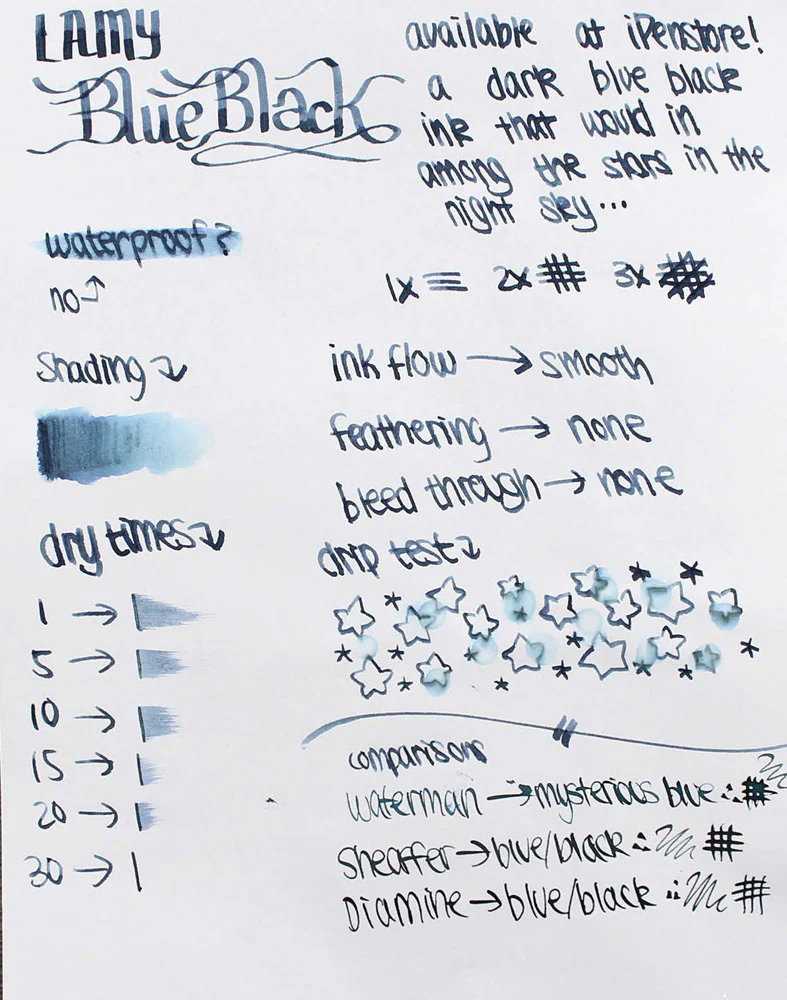 LAMY
Blue Black
available at iPenstore!
a dark blue black
ink that would in
among the stars in the
night sky...
waterproof?
no
1x 2x 3x
Shading
ink flow → smooth
feathering → none
bleed through → none
dry times
1 →
5 →
10 →
15 →
20 →
30 →
drip test
comparisons
waterman → mysterious blue
Sheaffer → blue/black
Diamine → blue/black